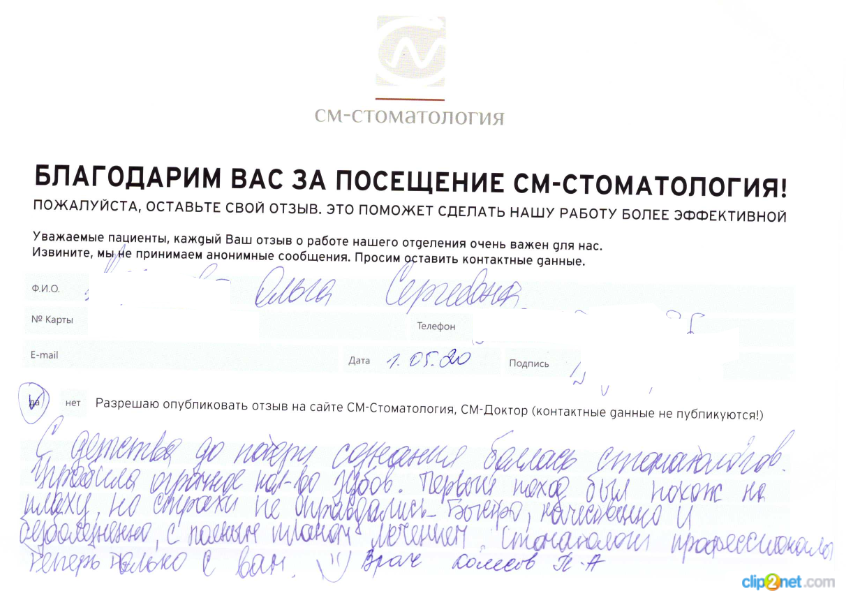 СМ-СТОМАТОЛОГИЯ
БЛАГОДАРИМ ВАС ЗА ПОСЕЩЕНИЕ СМ-СТОМАТОЛОГИЯ!
ПОЖАЛУЙСТА, ОСТАВЬТЕ СВОЙ ОТЗЫВ. ЭТО ПОМОЖЕТ СДЕЛАТЬ НАШУ РАБОТУ БОЛЕЕ ЭФФЕКТИВНОЙ
Уважаемые пациенты, каждый Ваш отзыв о работе нашего отделения очень важен для нас.
Извините, мы не принимаем анонимные сообщения. Просим оставить контактные данные.
Ф.И.О. Ольга Сергеевна
№ Карты Телефон
E-mail Дата 1.05.20 Подпись
да нет Разрешаю опубликовать отзыв на сайте СМ-Стоматология, СМ-Доктор (контактные данные не публикуются!)
С детства до потери сознания боялась стоматологов.
огромное кол-во зубов. Первый поход был похож на
плаху, но страхи не оправдались. Быстро, качественно и
безболезненно, с полным планом лечением. Стоматологи профессионалы
Теперь только с вам. Врач Колесов П.А
clip2net.com